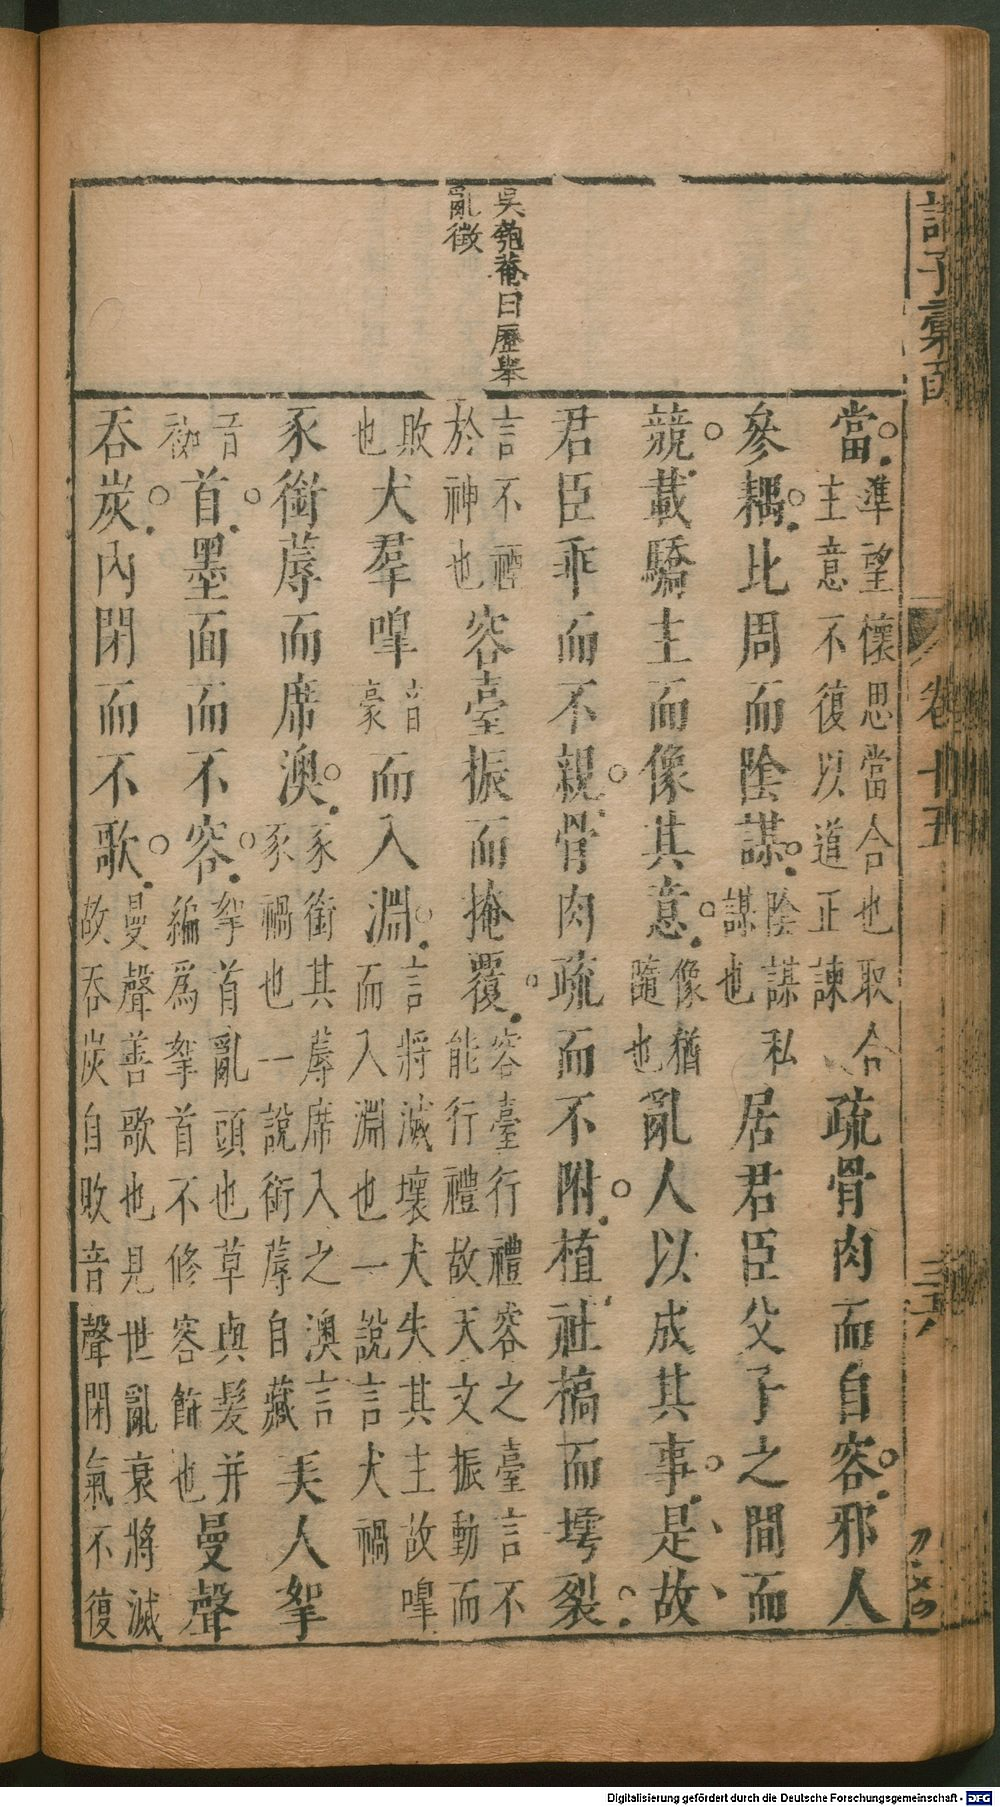 諸子彙函
卷十五
三六
吳匏菴曰歷舉
亂徵
當準望懷思當合也取合主意不復以道正諫疏骨肉而自容邪人
參耦比周而陰謀陰謀私謀也居君臣父子之間而
競載驕主而像其意像猶隨也亂人以成其事是故
君臣乖而不親骨肉疏而不附植社槁而㙤裂
言不禋於神也容臺振而掩覆容臺行禮容之臺言不能行禮故天文振動而
敗也犬羣嘷音豪而入淵言將滅壞犬失其主故嘷而入淵也一說言犬禍
豕銜蓐而席澳豕銜其蓐席入之澳言豕禍也一說銜蓐自藏美人挐
音袽首墨面而不容挐首亂頭也草與髮并編爲挐首不修容飾也曼聲
吞炭內閉而不歌曼聲善歌也見世亂衰將滅故吞炭自敗音聲閉氣不復
Digitalisierung gefördert durch die Deutsche Forschungsgemeinschaft - DFG